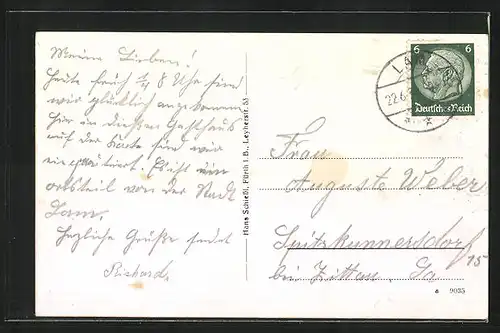 Meine Lieben!
Heute früh ½ 8 Uhr sind
wir glücklich angekommen
hier in diesem Gasthaus
auf der Karte sind wir
einquartiert. Es ist ein
ortsteil von der Stadt
Lam.
Herzliche Grüße sendet
Richard.
Hans Schiedl, Fürth i. B., Leyherstr. 53
6 6
Deutsches Reich
LAM
22.6.
Frau
Auguste Weber
Spitzkunnersdorf
15
bei Zittau, Sa
9035